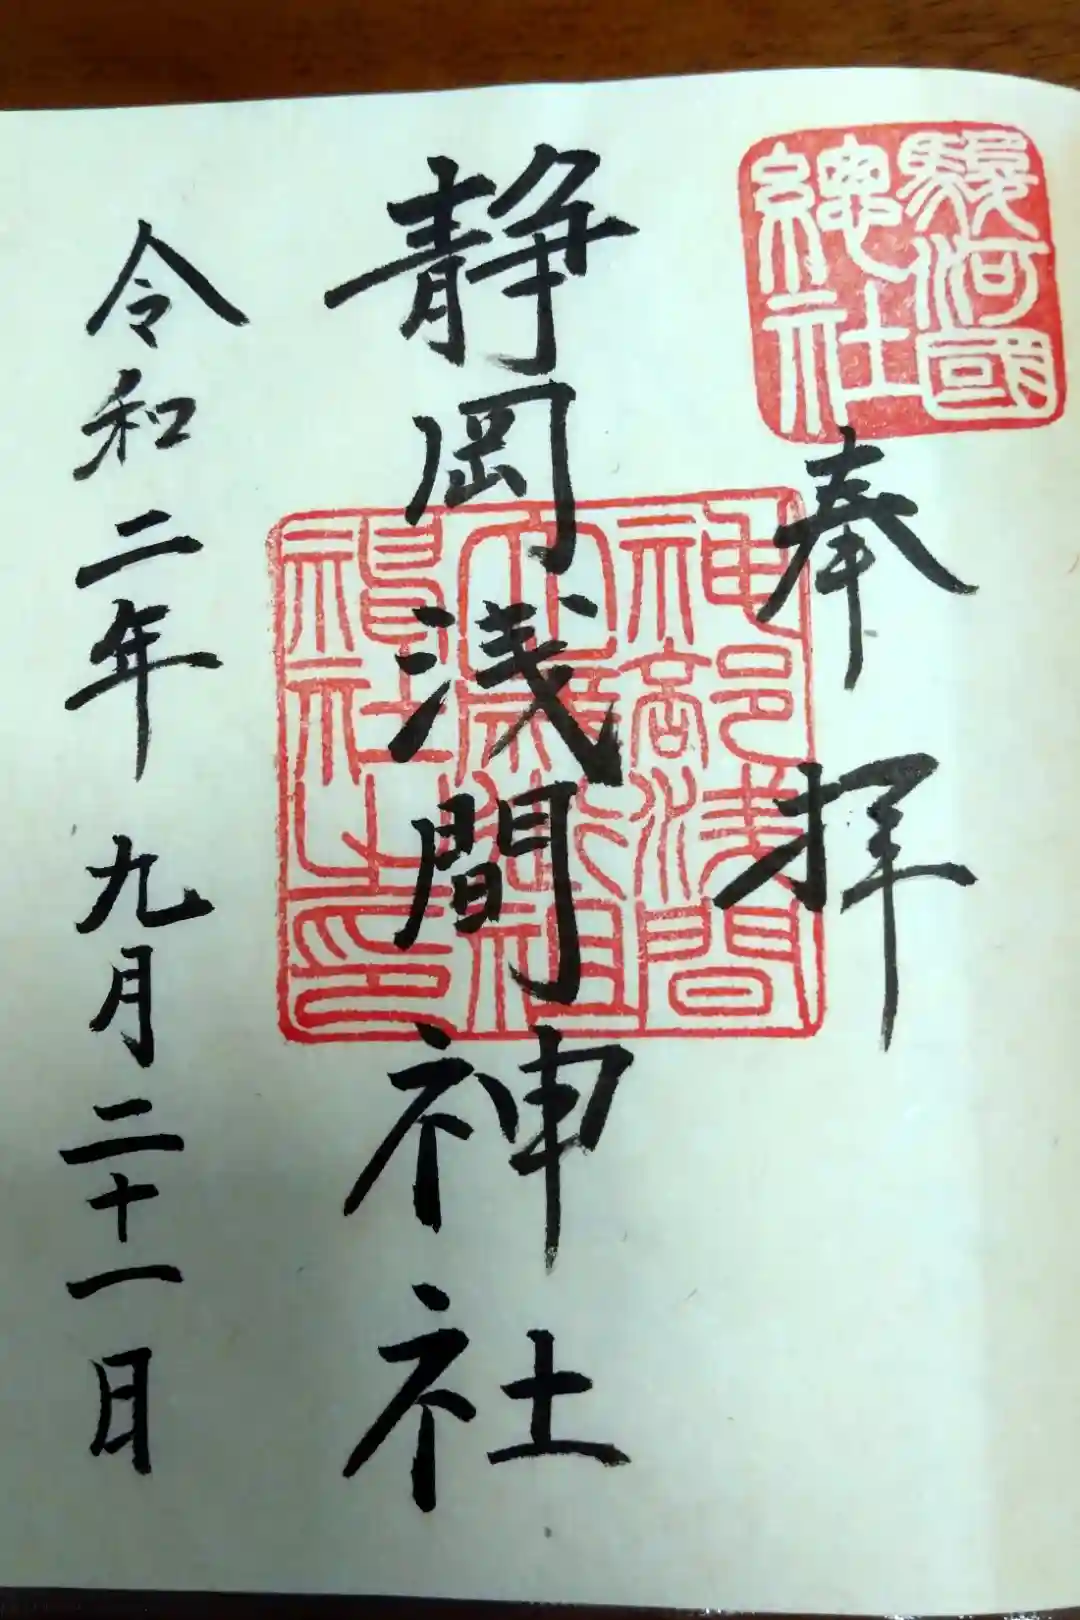 駿河國
總社
奉拝
神部浅間
大歳御祖
神社之印
静岡浅間神社
令和二年 九月二十一日